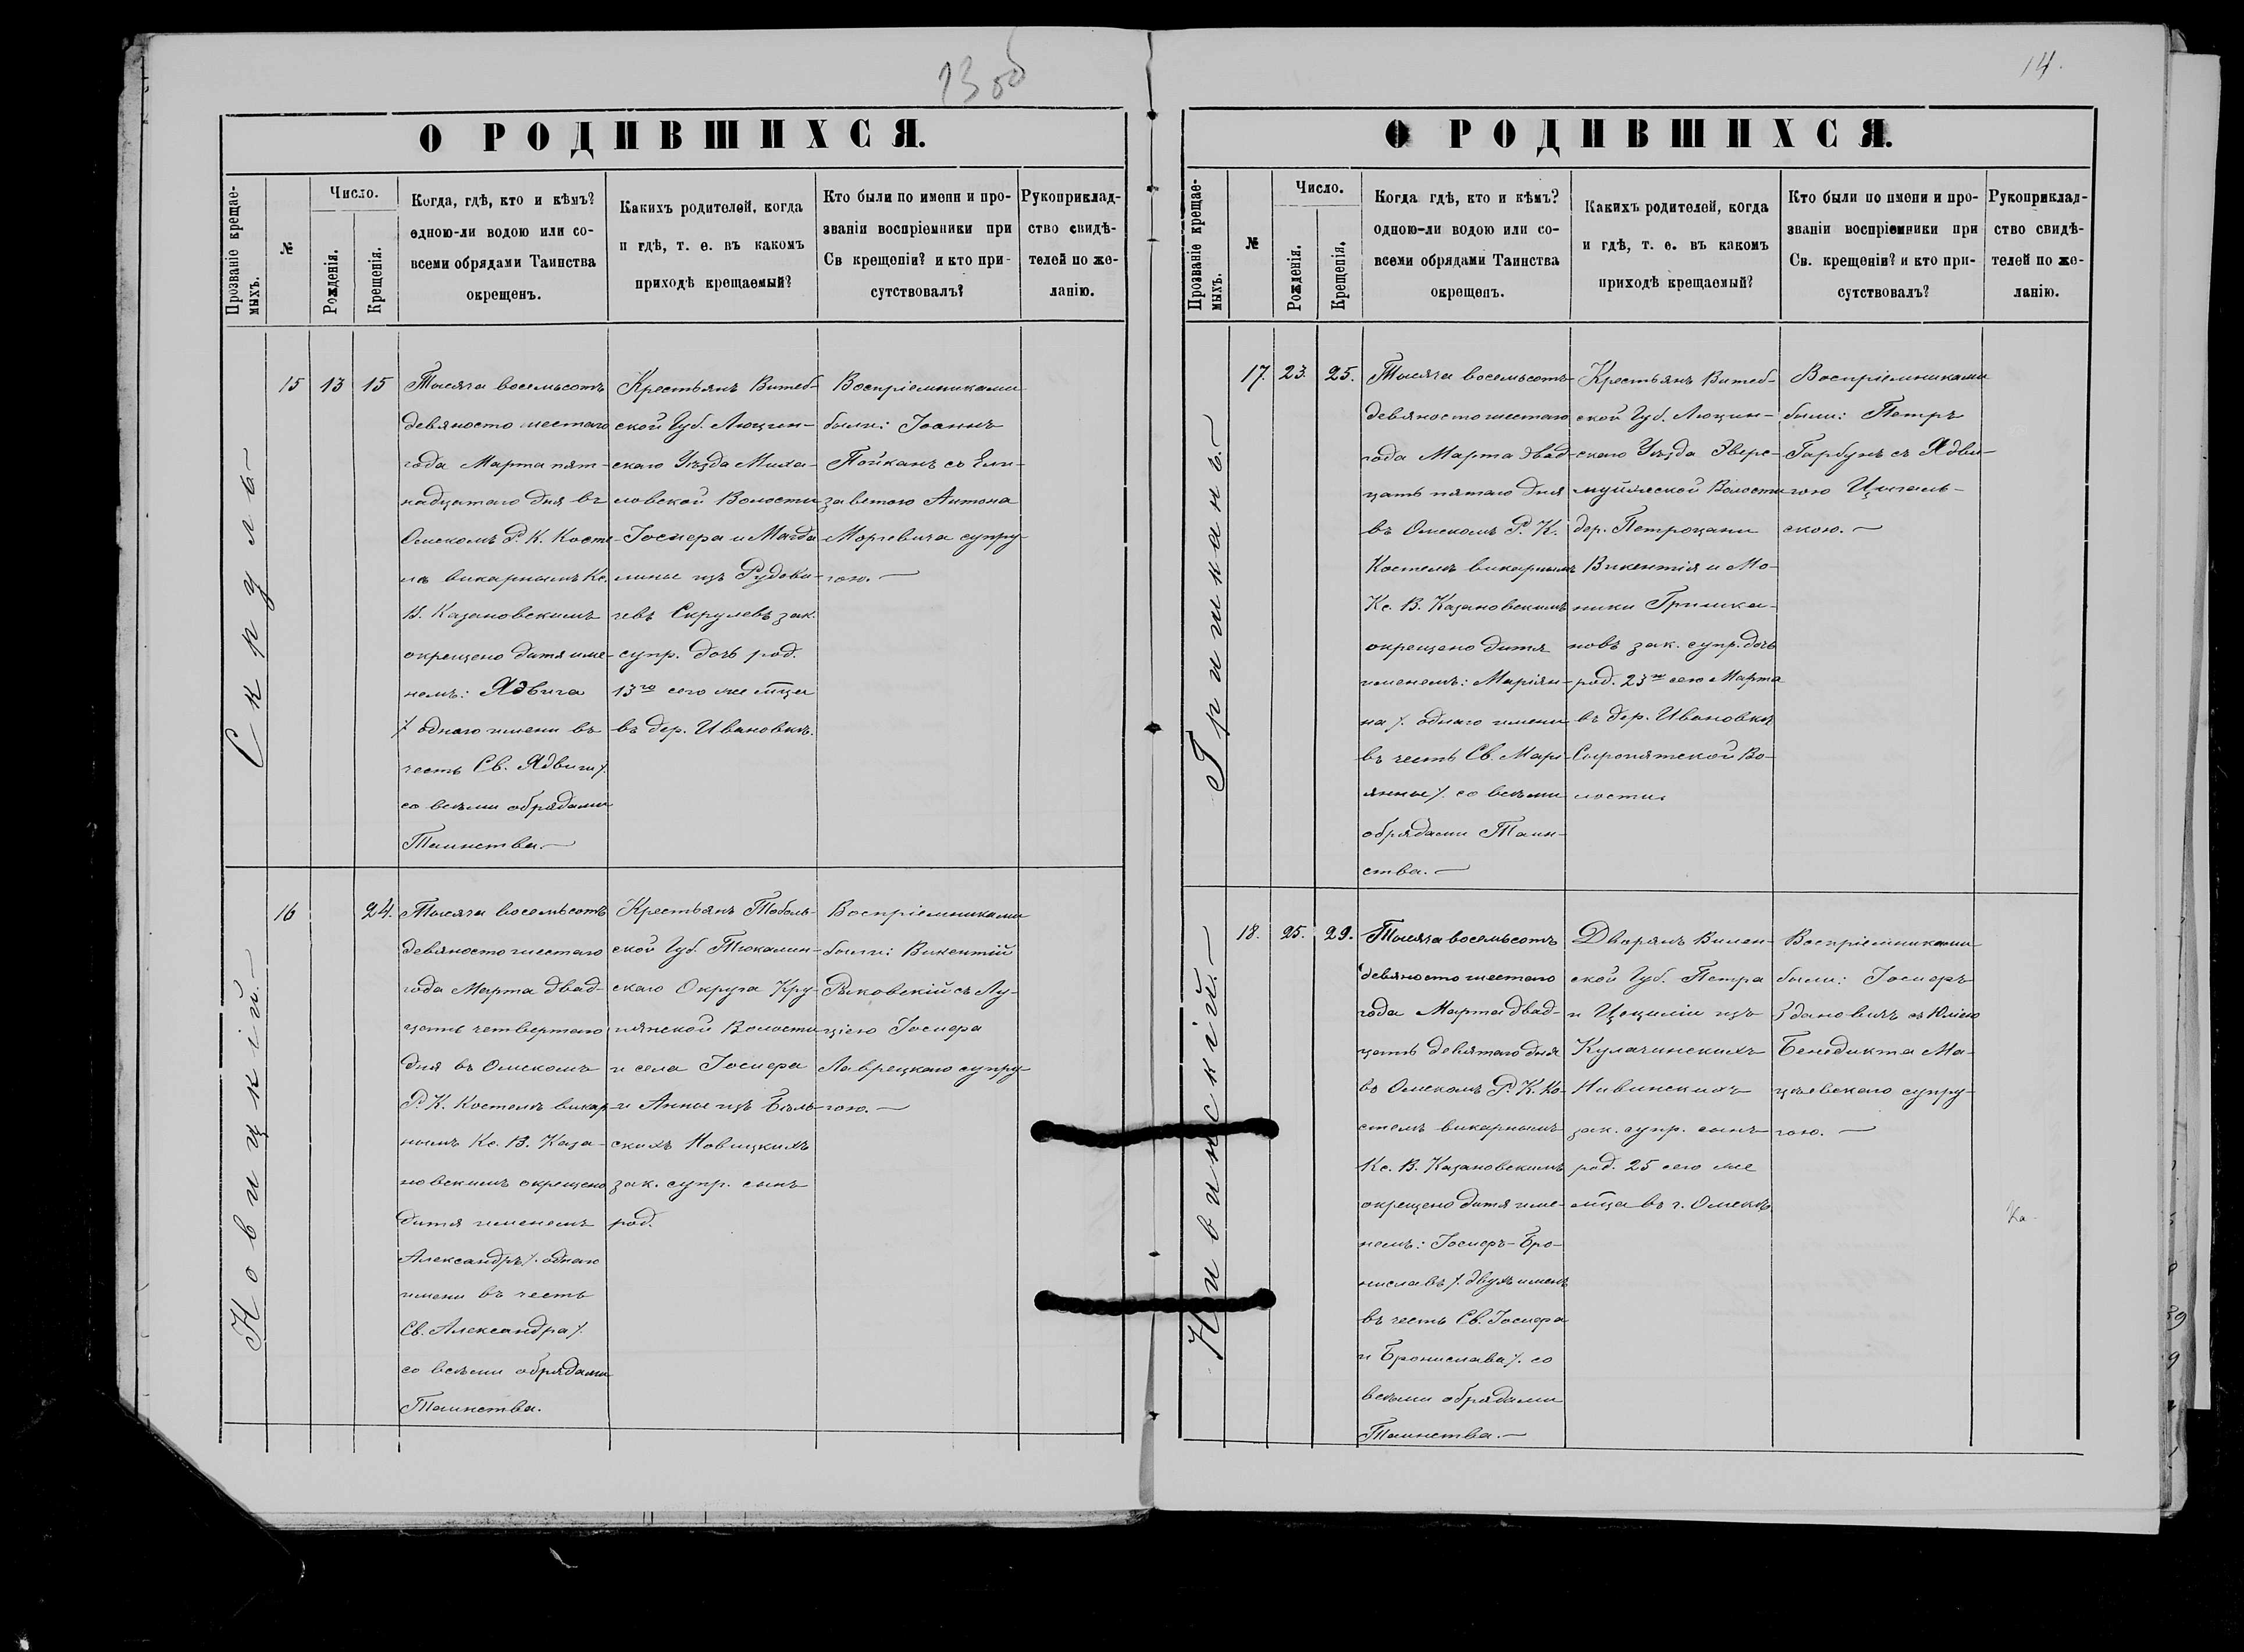 13 об
О РОДИВШИХСЯ.
Прозваніе крещае-
мыхъ.
№
Число.
Рожденія.
Крещенія.
Когда, гдѣ, кто и кѣмъ?
одною-ли водою или со-
всеми обрядами Таинства
окрещенъ.
Какихъ родителей, когда
и гдѣ, т. е. въ какомъ
приходѣ крещаемый?
Кто были по имени и про-
званіи воспріемники при
Св крещеніи? и кто при-
сутствовалъ?
Рукоприклад-
ство свидѣ-
телей по же-
ланію.
Скрулъ
15
13
15
Тысяча восемьсотъ
девяносто шестаго
года Марта пят-
надцатаго дня въ
Омскомъ Р. К. Косте-
лѣ викарнымъ Кс.
В. Казановскимъ
окрещено дитя име-
немъ: Ядвига
/. одного имени въ
честь Св. Ядвиги /.
со всѣми обрядами
Таинства.
Крестьянъ Витеб-
ской Губ. Люцин-
скаго Уѣзда Миха-
ловской Волости
Іосифа и Магда-
лины изъ Рудови-
чевъ Скрулевъ зак.
супр. дочь род.
13го сего же мѣца
въ дер. Ивановкѣ.
Воспріемниками
были: Іоаннъ
Пойканъ съ Ели-
заветою Антона
Моргевича супру-
гою.
Новицкій.
16
24.
Тысяча восемьсотъ
девяносто шестаго
года Марта двад-
цать четвертаго
дня въ Омскомъ
Р. К. Костелѣ викар-
нымъ Кс. В. Каза-
новскимъ окрещено
дитя именемъ
Александръ /. одного
имени въ честь
Св. Александра /.
со всѣми обрядами
Таинства.
Крестьянъ Тоболь-
ской Губ. Тюкалин-
скаго Округа Кру-
пянской Волости
и села Іосифа
и Анны изъ Бѣль-
скихъ Новицкихъ
зак. супр. сынъ
род.
Воспріемниками
были: Викентій
Рыковскій съ Лу-
ціею Іосифа
Лаврецкаго супру-
гою.
14.
О РОДИВШИХСЯ.
Прозваніе крещае-
мыхъ.
№
Число.
Рожденія.
Крещенія.
Когда гдѣ, кто и кѣмъ?
одною-ли водою или со-
всеми обрядами Таинства
окрещенъ.
Какихъ родителей, когда
и гдѣ, т. е. въ какомъ
приходѣ крещаемый?
Кто были по имени и про-
званіи воспріемники при
Св. крещеніи? и кто при-
сутствовалъ?
Рукоприклад-
ство свидѣ-
телей по же-
ланію.
Гришканъ.
17.
23.
25.
Тысяча восемьсотъ
девяносто шестаго
года Марта двад-
цать пятаго дня
въ Омскомъ Р. К.
Костелѣ викарнымъ
Кс. В. Казановскимъ
окрещено дитя
именемъ: Маріян-
на /. одного имени
въ честь Св. Мари-
янны /. со всѣми
обрядами Таин-
ства.
Крестьянъ Витеб-
ской Губ. Люцин-
скаго Уѣзда Звирс-
муйжской Волости
дер. Петроцани
Викентія и Мо-
ники Гришка-
новъ зак. супр. дочь
род. 23го сего Марта
въ дер. Ивановкѣ
Сыропятской Во-
лости.
Воспріемниками
были: Петръ
Гарбунъ съ Ядви-
гою Цигель-
скою.
Нивинскій.
18.
25.
29.
Тысяча восемьсотъ
девяносто шестаго
года Марта двад-
цать девятаго дня
въ Омскомъ Р. К. Ко-
стелѣ викарнымъ
Кс. В. Казановскимъ
окрещено дитя име-
немъ: Іосифъ-Бро-
ниславъ /. двухъ именъ
въ честь Св. Іосифа
и Бронислава /. со
всѣми обрядами
Таинства.
Дворянъ Вилен-
ской Губ. Петра
и Цециліи изъ
Кулачинскихъ
Нивинскихъ
зак. супр. сынъ
род. 25 сего же
мѣца въ г. Омскѣ
Воспріемниками
были: Іосифъ
Здановичъ съ Юліею
Бенедикта Ма-
цѣевскаго супру-
гою.